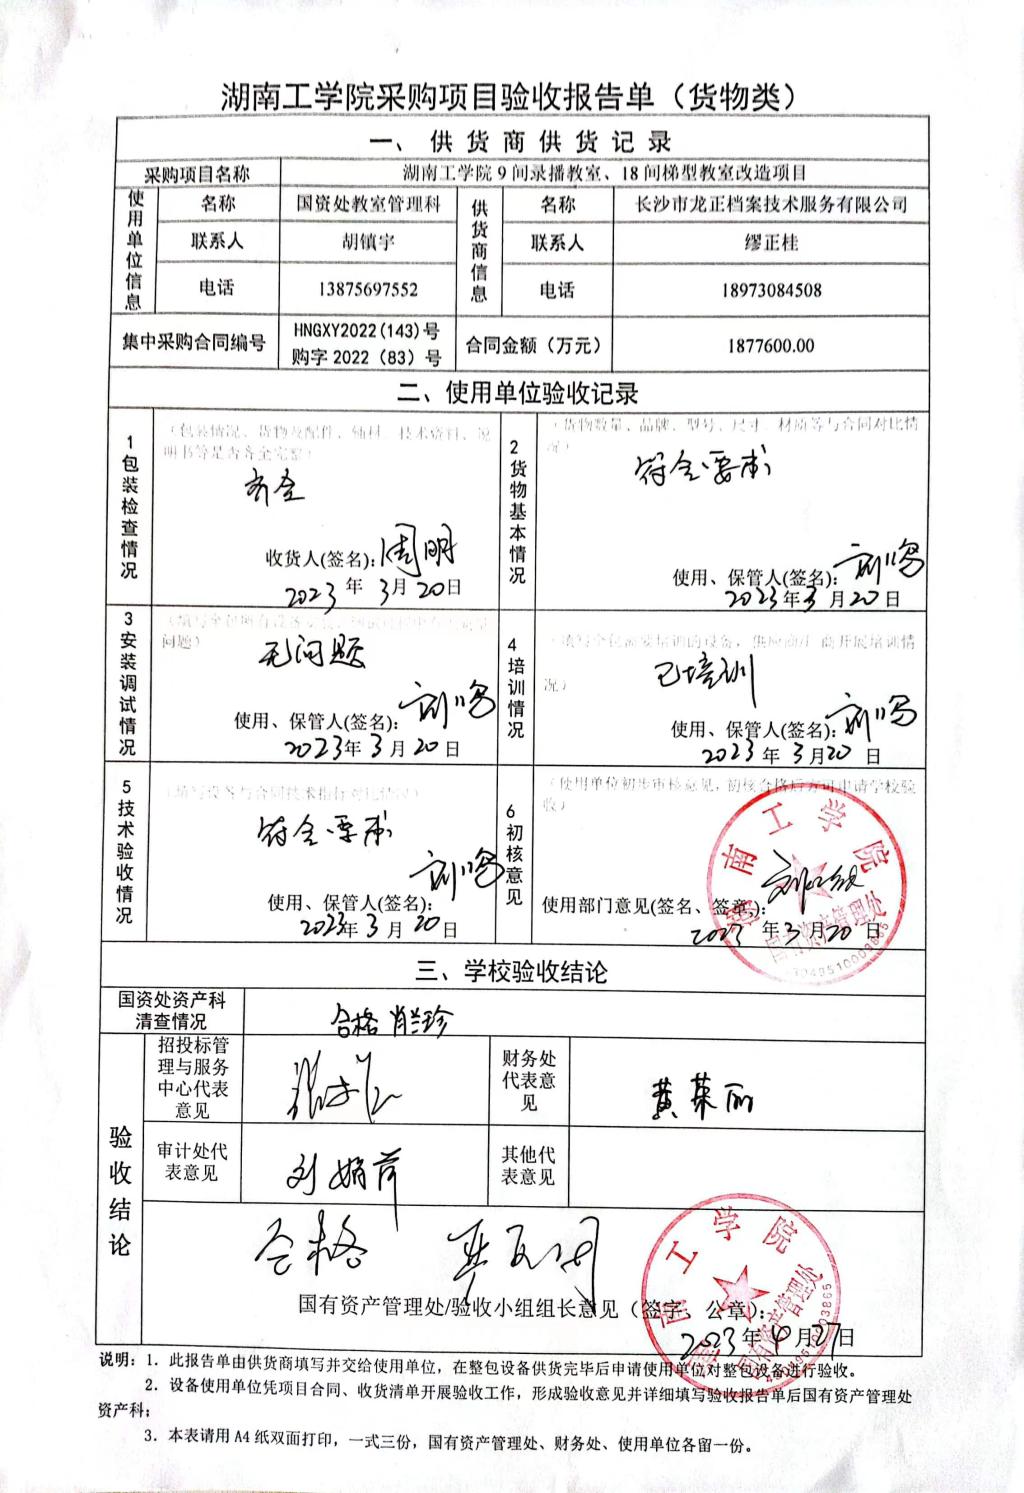 湖南工学院采购项目验收报告单（货物类）
一、供货商供货记录
采购项目名称 湖南工学院9间录播教室、18间梯型教室改造项目
使用单位信息 名称 国资处教室管理科 供货商信息 名称 长沙市龙正档案技术服务有限公司
联系人 胡镇宇 联系人 缪正桂
电话 13875697552 电话 18973084508
集中采购合同编号 HNGXY2022(143)号
购字2022（83）号 合同金额（万元） 1877600.00
二、使用单位验收记录
1包装检查情况
（包装情况、货物及配件、辅材、技术资料、说
明书等是否齐全完整）
齐全
收货人(签名): 周明
2023年3月20日
2货物基本情况
（货物数量、品牌、型号、尺寸、材质等与合同对比情
况）
符合要求
使用、保管人(签名):
2023年3月20日
3安装调试情况
问题）
无问题
使用、保管人(签名):
2023年3月20日
4培训情况
（填写全包需要培训的设备，供应商/厂商开展培训情
况）
已培训
使用、保管人(签名):
2023年3月20日
5技术验收情况
（填写设备与合同技术指标对比情况）
符合要求
使用、保管人(签名):
2023年3月20日
6初核意见
（使用单位初步审核意见，初核合格后方可申请学校验
收）
使用部门意见(签名、签章):
2023年3月20日
湖南工学院
国有资产管理处
三、学校验收结论
国资处资产科
清查情况
合格 肖兰珍
验收结论
招投标管
理与服务
中心代表
意见
财务处
代表意
见
黄莱丽
审计处代
表意见
刘娟荷
其他代
表意见
合格
国有资产管理处/验收小组组长意见（签字、公章）:
2023年4月27日
湖南工学院
国有资产管理处
说明：1. 此报告单由供货商填写并交给使用单位，在整包设备供货完毕后申请使用单位对整包设备进行验收。
2. 设备使用单位凭项目合同、收货清单开展验收工作，形成验收意见并详细填写验收报告单后国有资产管理处
资产科；
3. 本表请用A4纸双面打印，一式三份，国有资产管理处、财务处、使用单位各留一份。